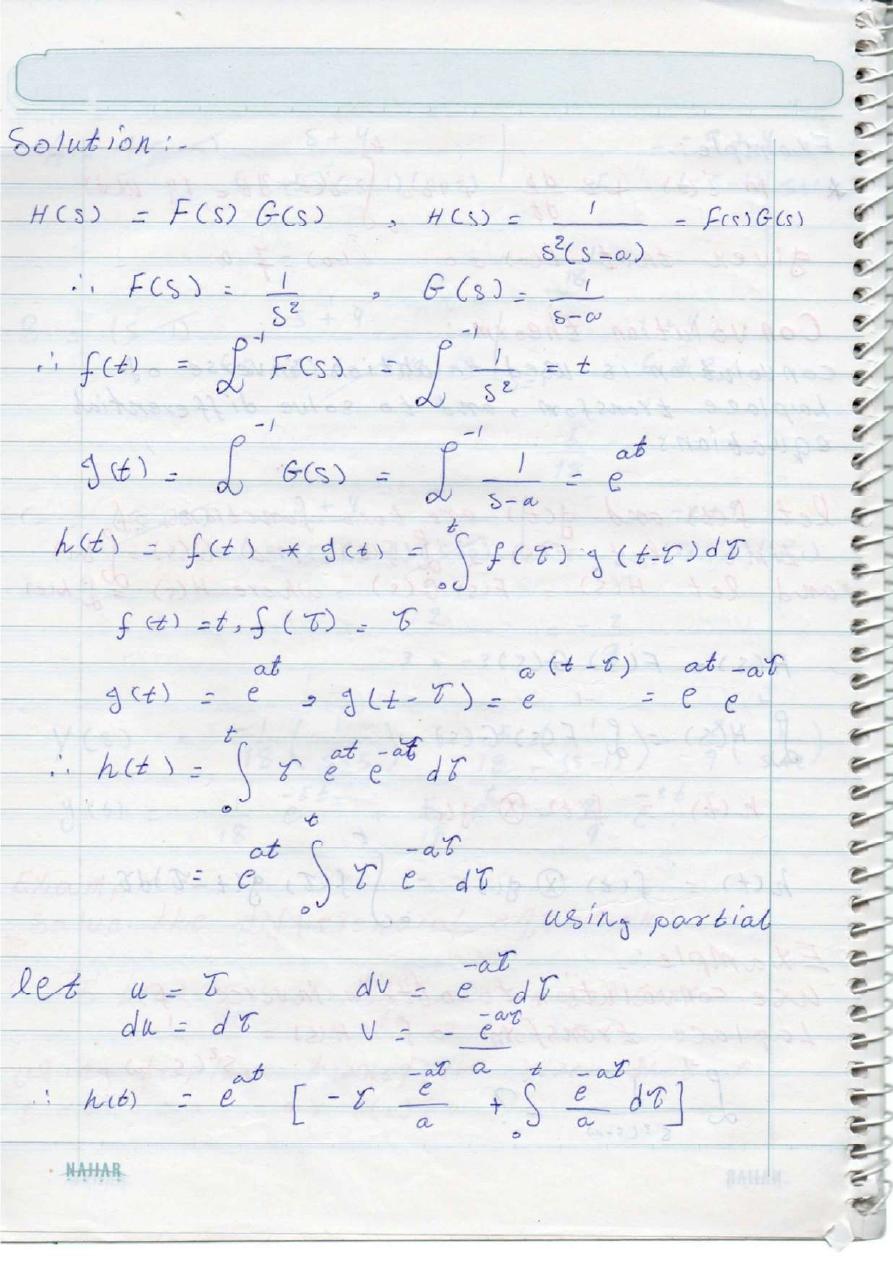 Solution :-
H(s) = F(s) G(s) , H(s) = 1/(s²(s-a)) = F(s)G(s)
∴ F(s) = 1/s² , G(s) = 1/(s-a)
∴ f(t) = ℒ⁻¹ F(s) = ℒ⁻¹ 1/s² = t
g(t) = ℒ⁻¹ G(s) = ℒ⁻¹ 1/(s-a) = e^(at)
h(t) = f(t) * g(t) = ∫₀ᵗ f(τ) g(t-τ) dτ
f(t) = t, f(τ) = τ
g(t) = e^(at) , g(t-τ) = e^(a(t-τ)) = e^(at) e^(-aτ)
∴ h(t) = ∫₀ᵗ τ e^(at) e^(-aτ) dτ
= e^(at) ∫₀ᵗ τ e^(-aτ) dτ
using partial
let u = τ dv = e^(-aτ) dτ
du = dτ v = - e^(-aτ)/a
∴ h(t) = e^(at) [ - τ e^(-aτ)/a + ∫₀ᵗ e^(-aτ)/a dτ ]
NAHAR